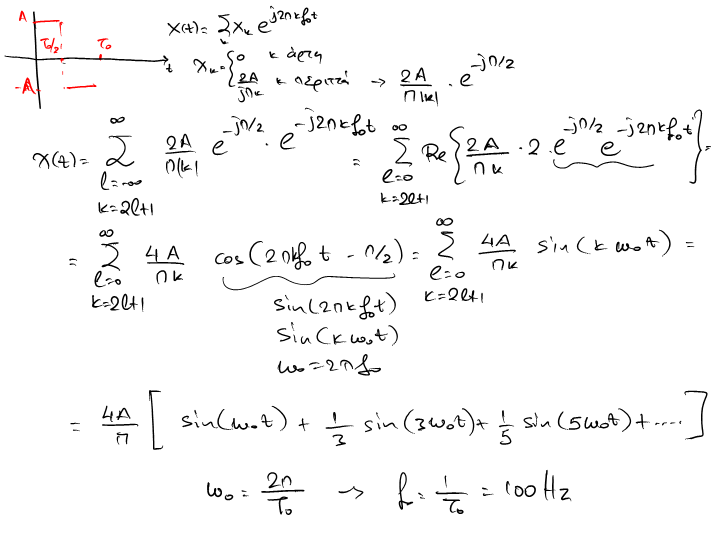 A
T₀/2 T₀
-A
t
x(t) = Σ_k X_k e^{j2πkf₀t}
X_k = { 0 κ άρτι
2A/(jπk) κ περιττά → 2A/(π|k|) · e^{-jπ/2}
x(t) = Σ_{l=-∞, k=2l+1}^{∞} 2A/(π|k|) e^{-jπ/2} · e^{-j2πkf₀t} = Σ_{l=0, k=2l+1}^{∞} Re{ 2A/(πk) · 2 · e^{-jπ/2} e^{-j2πkf₀t} } =
= Σ_{l=0, k=2l+1}^{∞} 4A/(πk) cos(2πkf₀t - π/2) = Σ_{l=0, k=2l+1}^{∞} 4A/(πk) sin(kω₀t) =
sin(2πkf₀t)
sin(kω₀t)
ω₀ = 2πf₀
= 4A/π [ sin(ω₀t) + 1/3 sin(3ω₀t) + 1/5 sin(5ω₀t) + .... ]
ω₀ = 2π/T₀ → f₀ = 1/T₀ = 100 Hz